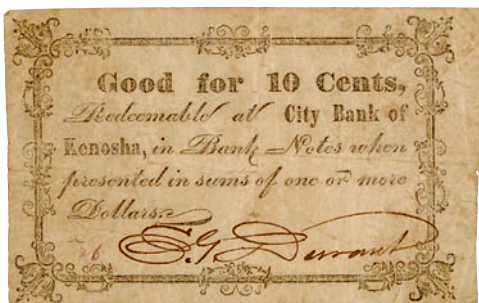 Good for 10 Cents,
Redeemable at City Bank of
Kenosha, in Bank Notes when
presented in sums of one or more
Dollars.
S. G. Durant
26